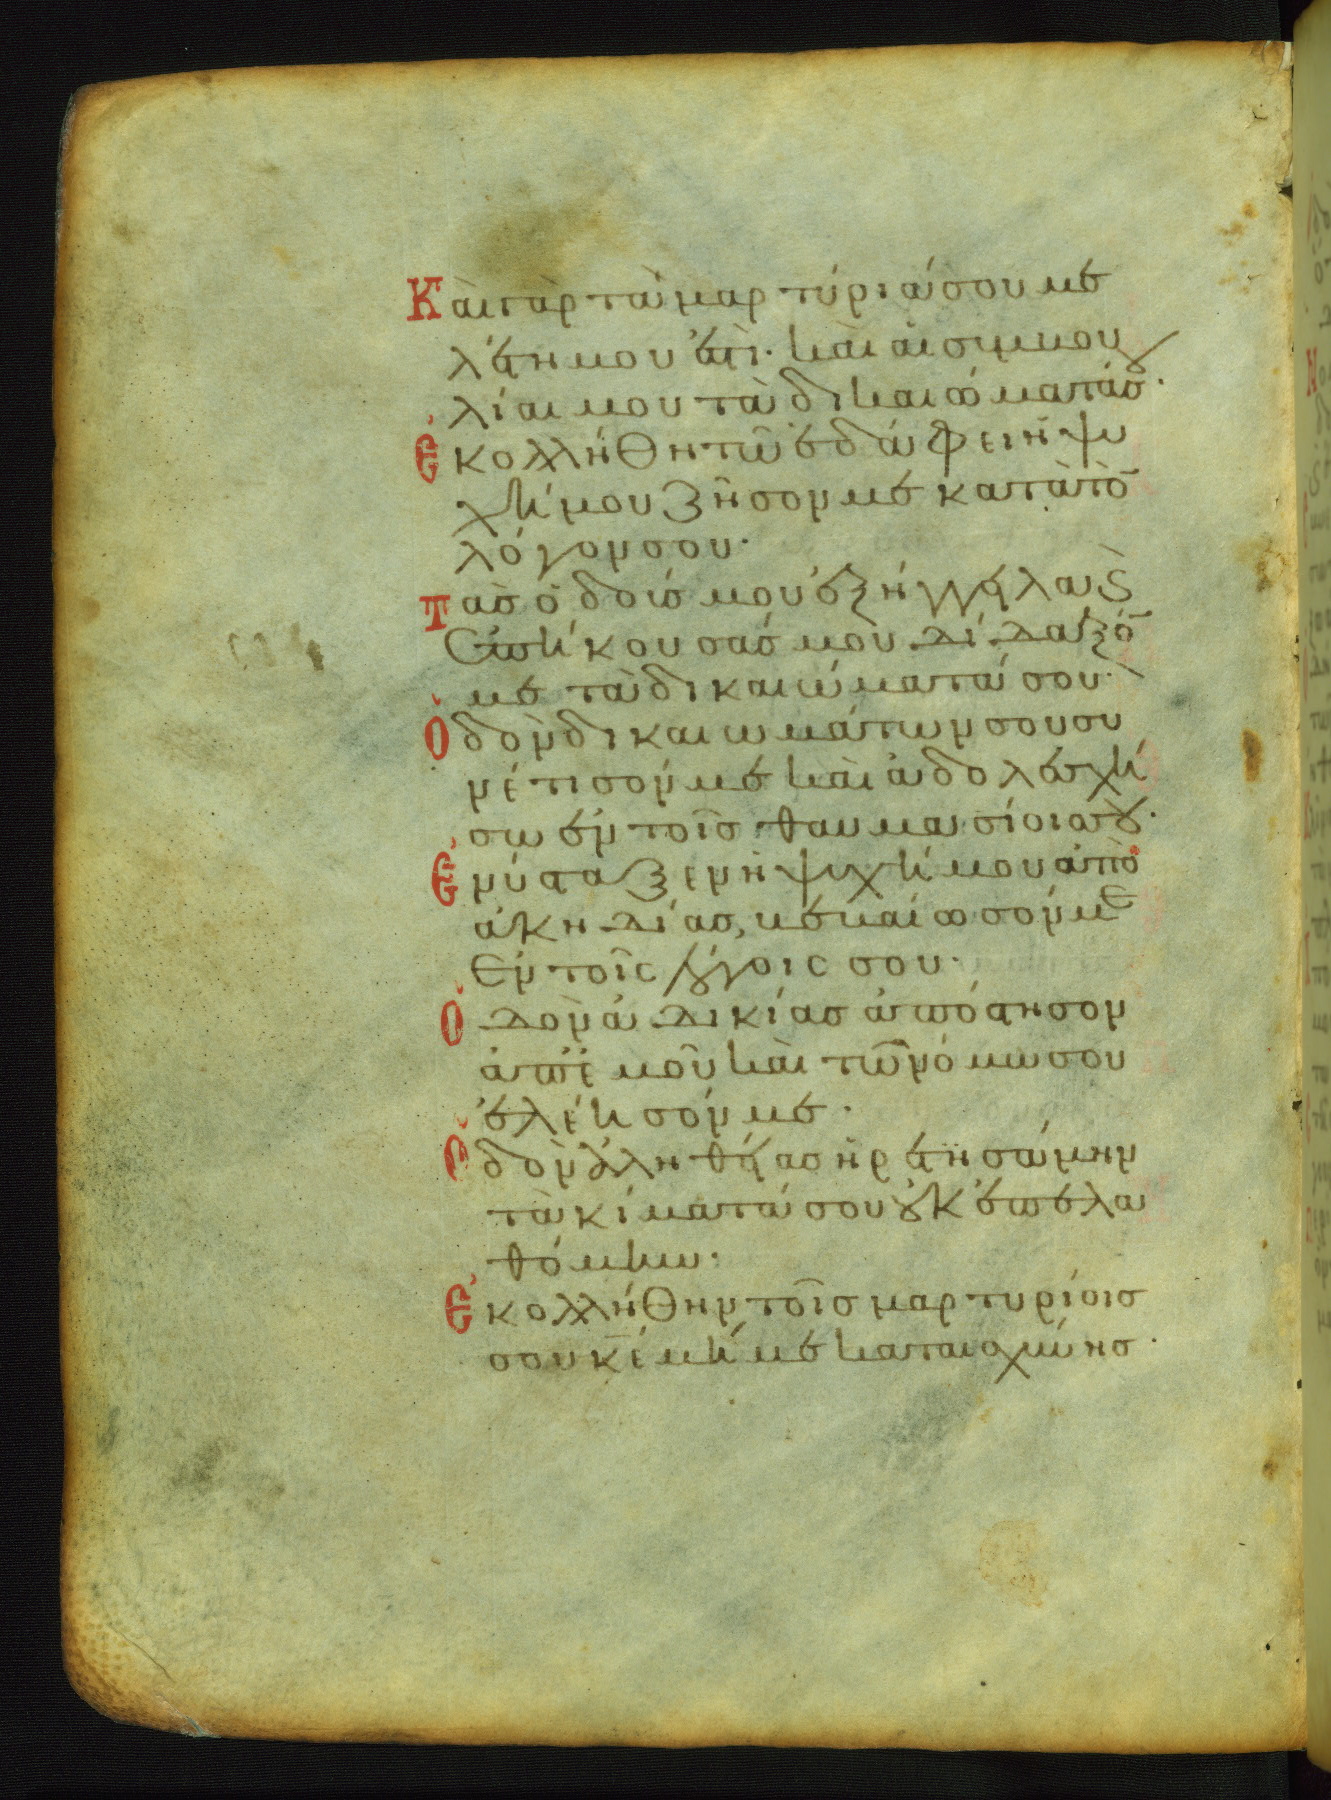 Καὶ γὰρ τὰ μαρτύριά σου με
λέτη μου ἐστὶ· καὶ αἱ συμβου
λίαι μου τὰ δικαιώματά σου·
Ἐκολλήθη τῶ ἐδάφει ἡ ψυ
χή μου ζῆσόν με κατὰ τὸν
λόγον σου·
Τὰς ὁδούς μου ἐξήγγειλα καὶ
ἐπήκουσάς μου δίδαξόν
με τὰ δικαιώματά σου·
Ὁδὸν δικαιωμάτων σου συ
νέτισόν με καὶ ἀδολεσχή
σω ἐν τοῖς θαυμασίοις σου·
Ἐνύσταξεν ἡ ψυχή μου ἀπὸ
ἀκηδίας, βεβαίωσόν με
ἐν τοῖς λόγοις σου·
Ὁδὸν ἀδικίας ἀπόστησον
ἀπ' ἐμοῦ καὶ τῶ νόμω σου
ἐλέησόν με·
Ὁδὸν ἀληθείας ἡρετησάμην
τὰ κρίματά σου οὐκ ἐπελα
θόμην·
Ἐκολλήθην τοῖς μαρτυρίοις
σου κε μή με καταισχύνης·